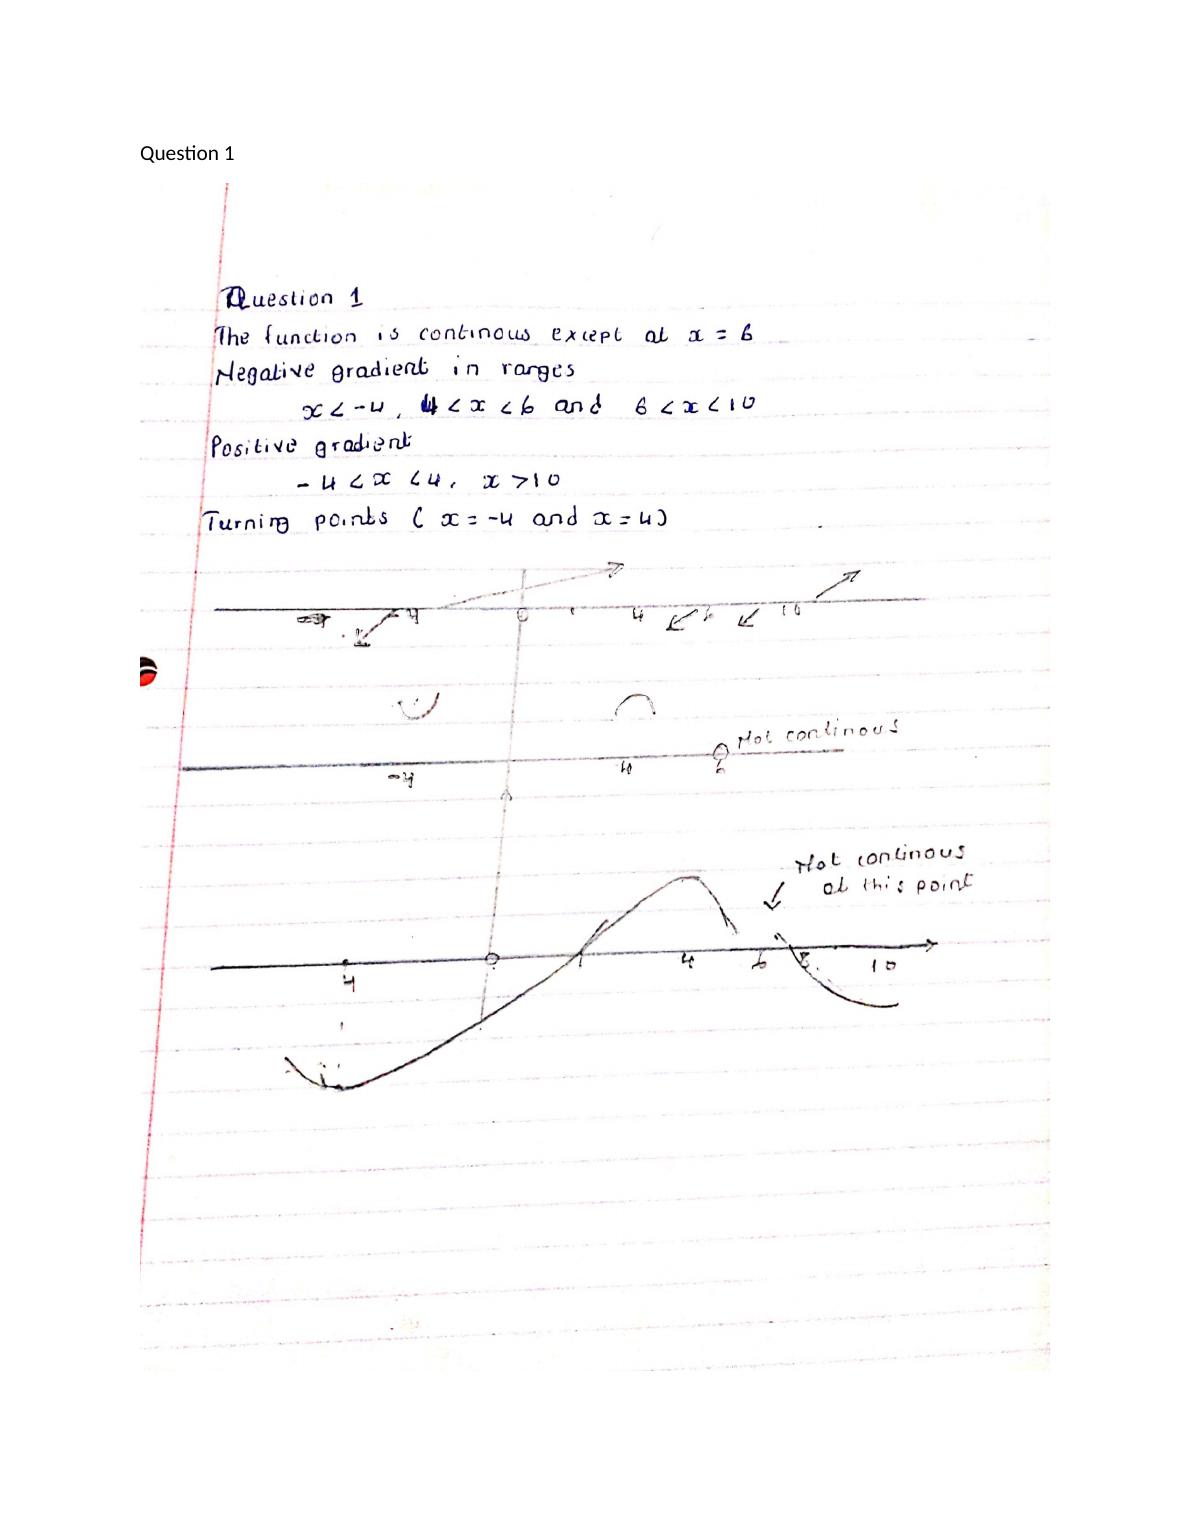 Question 1
Question 1
The function is continous except at x = 6
Negative gradient in ranges
x < -4, 4 < x < 6 and 6 < x < 10
Positive gradient
- 4 < x < 4, x > 10
Turning points ( x = -4 and x = 4)
-4 0 4 6 10
Not continous
-4 4 6
Not continous
at this point
4 0 1 4 6 8 10